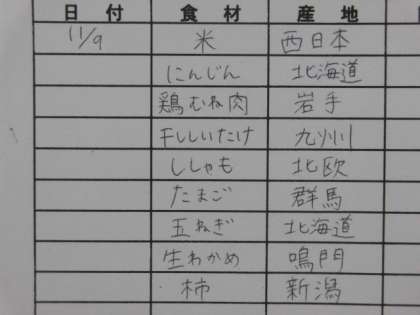 日付 食材 産地
11/9 米 西日本
にんじん 北海道
鶏むね肉 岩手
干ししいたけ 九州
ししゃも 北欧
たまご 群馬
玉ねぎ 北海道
生わかめ 鳴門
柿 新潟